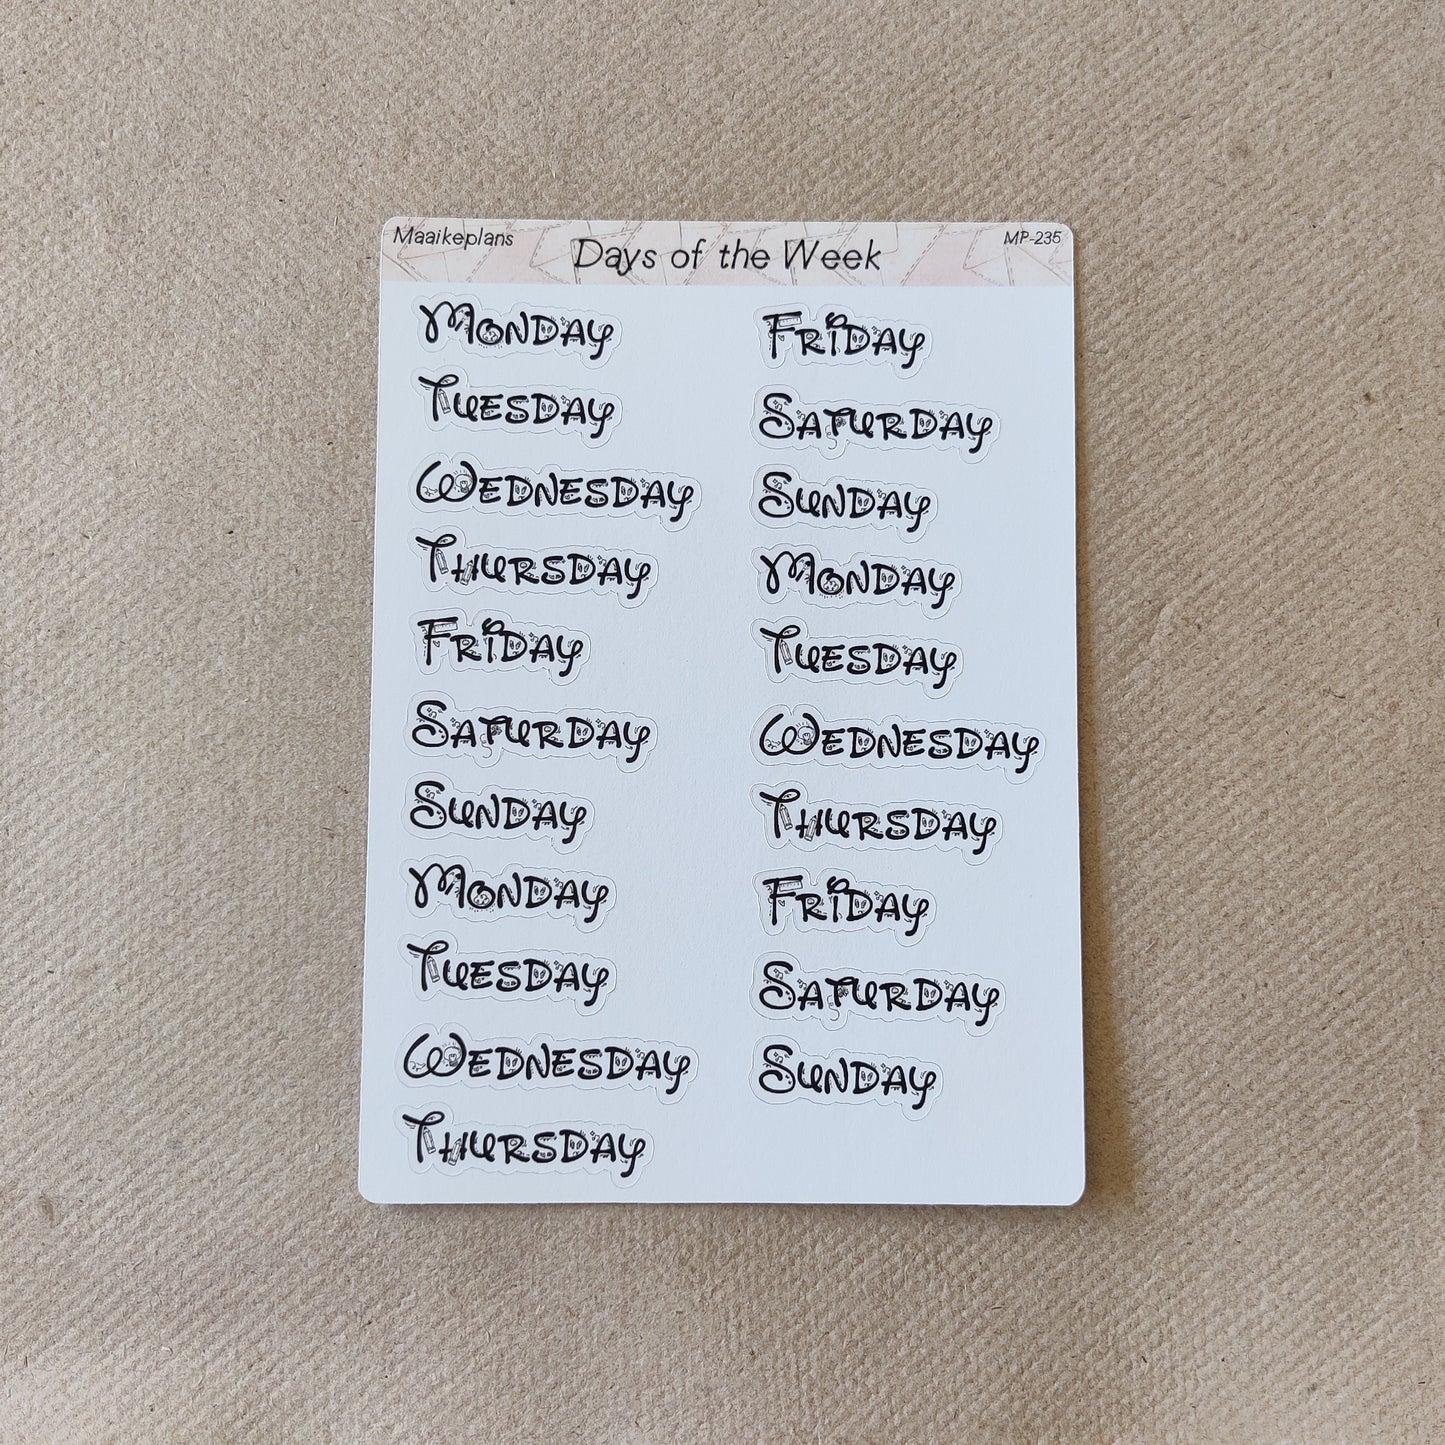 Maaikeplans
Days of the Week
MP-235
MONDAY
TUESDAY
WEDNESDAY
THURSDAY
FRIDAY
SATURDAY
SUNDAY
MONDAY
TUESDAY
WEDNESDAY
THURSDAY
FRIDAY
SATURDAY
SUNDAY
MONDAY
TUESDAY
WEDNESDAY
THURSDAY
FRIDAY
SATURDAY
SUNDAY